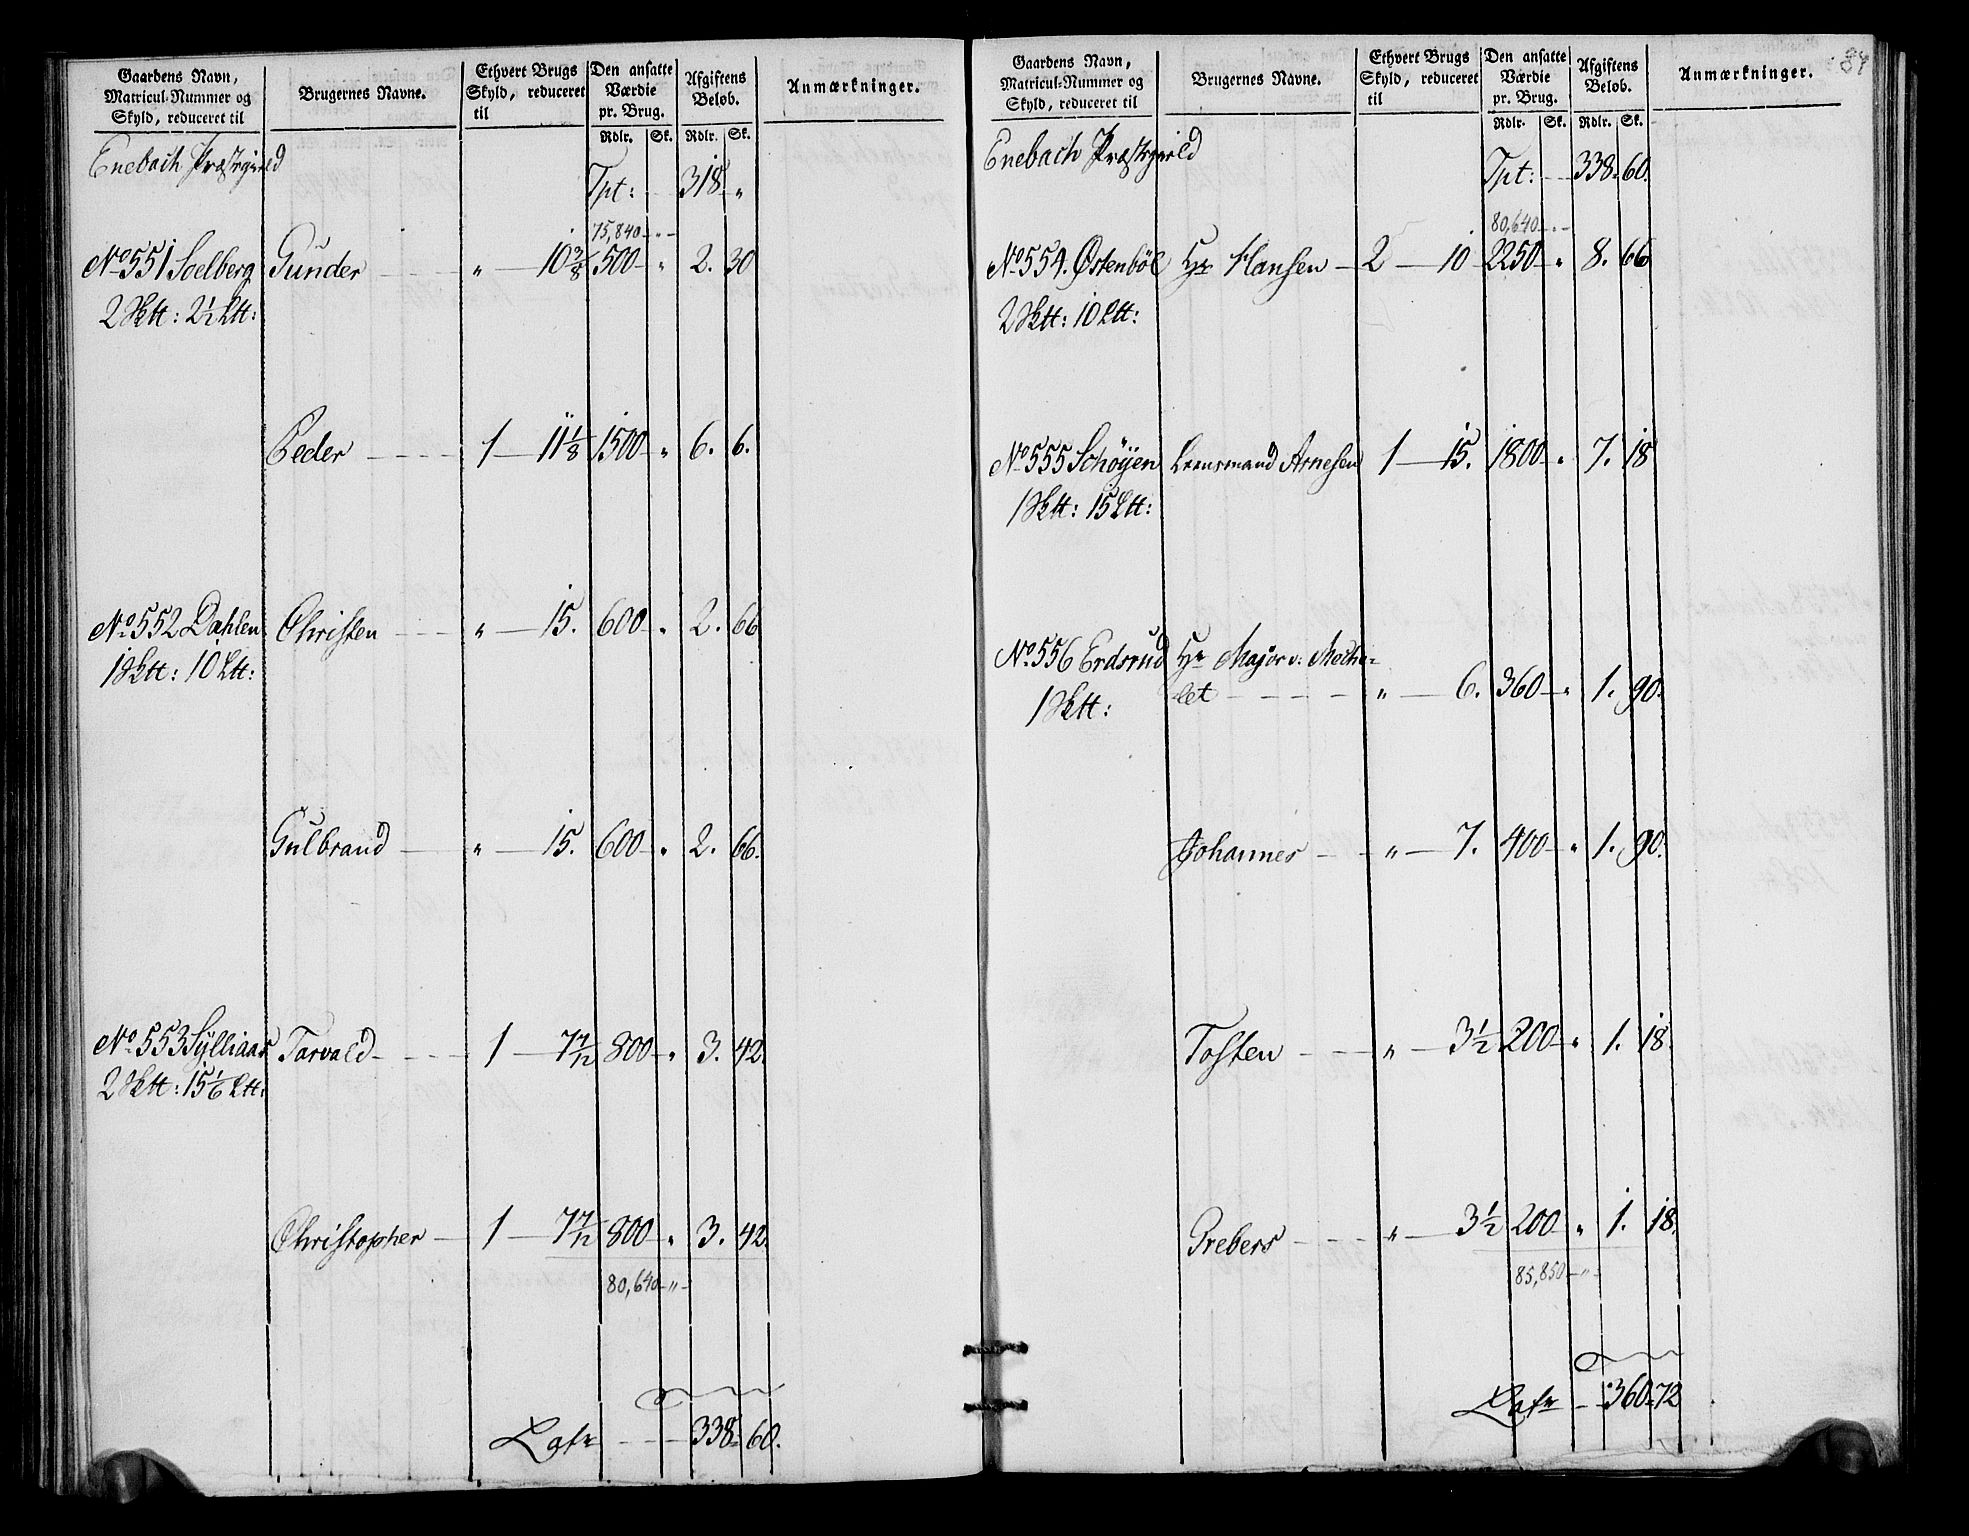 Gaardens Navn, Matricul-Nummer og Skyld, reduceret til | Brugernes Navne. | Ethvert Brugs Skyld, reduceret til | Den ansatte Værdie pr. Brug. Rdlr. Sk. | Afgiftens Beløb. Rdlr. Sk. | Anmærkninger.
Enebach Præstegield
Tpt: 318 „
75,840 „
No 551 Soelberg Gunder „ 10 3/8 500 „ 2. 30
2 Sktt: 2½ Ltt:
Peder 1 11 1/8 1500 „ 6. 6.
No 552 Dahlen Christen „ 15. 600 „ 2. 66
1 Sktt: 10 Ltt:
Gulbrand „ 15. 600 „ 2. 66.
No 553 Sylliaas Tarvald 1 7 7/12 800 „ 3. 42.
2 Sktt: 15 1/6 Ltt:
Christopher 1 7 7/12 800 „ 3. 42.
80,640 „
Latr 338 60.
84
Gaardens Navn, Matricul-Nummer og Skyld, reduceret til | Brugernes Navne. | Ethvert Brugs Skyld, reduceret til | Den ansatte Værdie pr. Brug. Rdlr. Sk. | Afgiftens Beløb. Rdlr. Sk. | Anmærkninger.
Enebach Præstegield
Tpt: 338 60.
80,640 „
No 554. Østenbøl Hr Hansen 2 10 2250 „ 8. 66
2 Sktt: 10 Ltt:
No 555 Schøyen Lensmand Arnesen 1 15. 1800 „ 7. 18
1 Sktt: 15 Ltt:
No 556 Erdsrud Hr Major v: Meche-
1 Sktt: let „ 6. 360 „ 1. 90.
Johannes „ 7. 400 „ 1. 90.
Tosten „ 3½ 200 „ 1. 18.
Grebers „ 3½ 200 „ 1. 18.
85,850 „
Latr 360 72